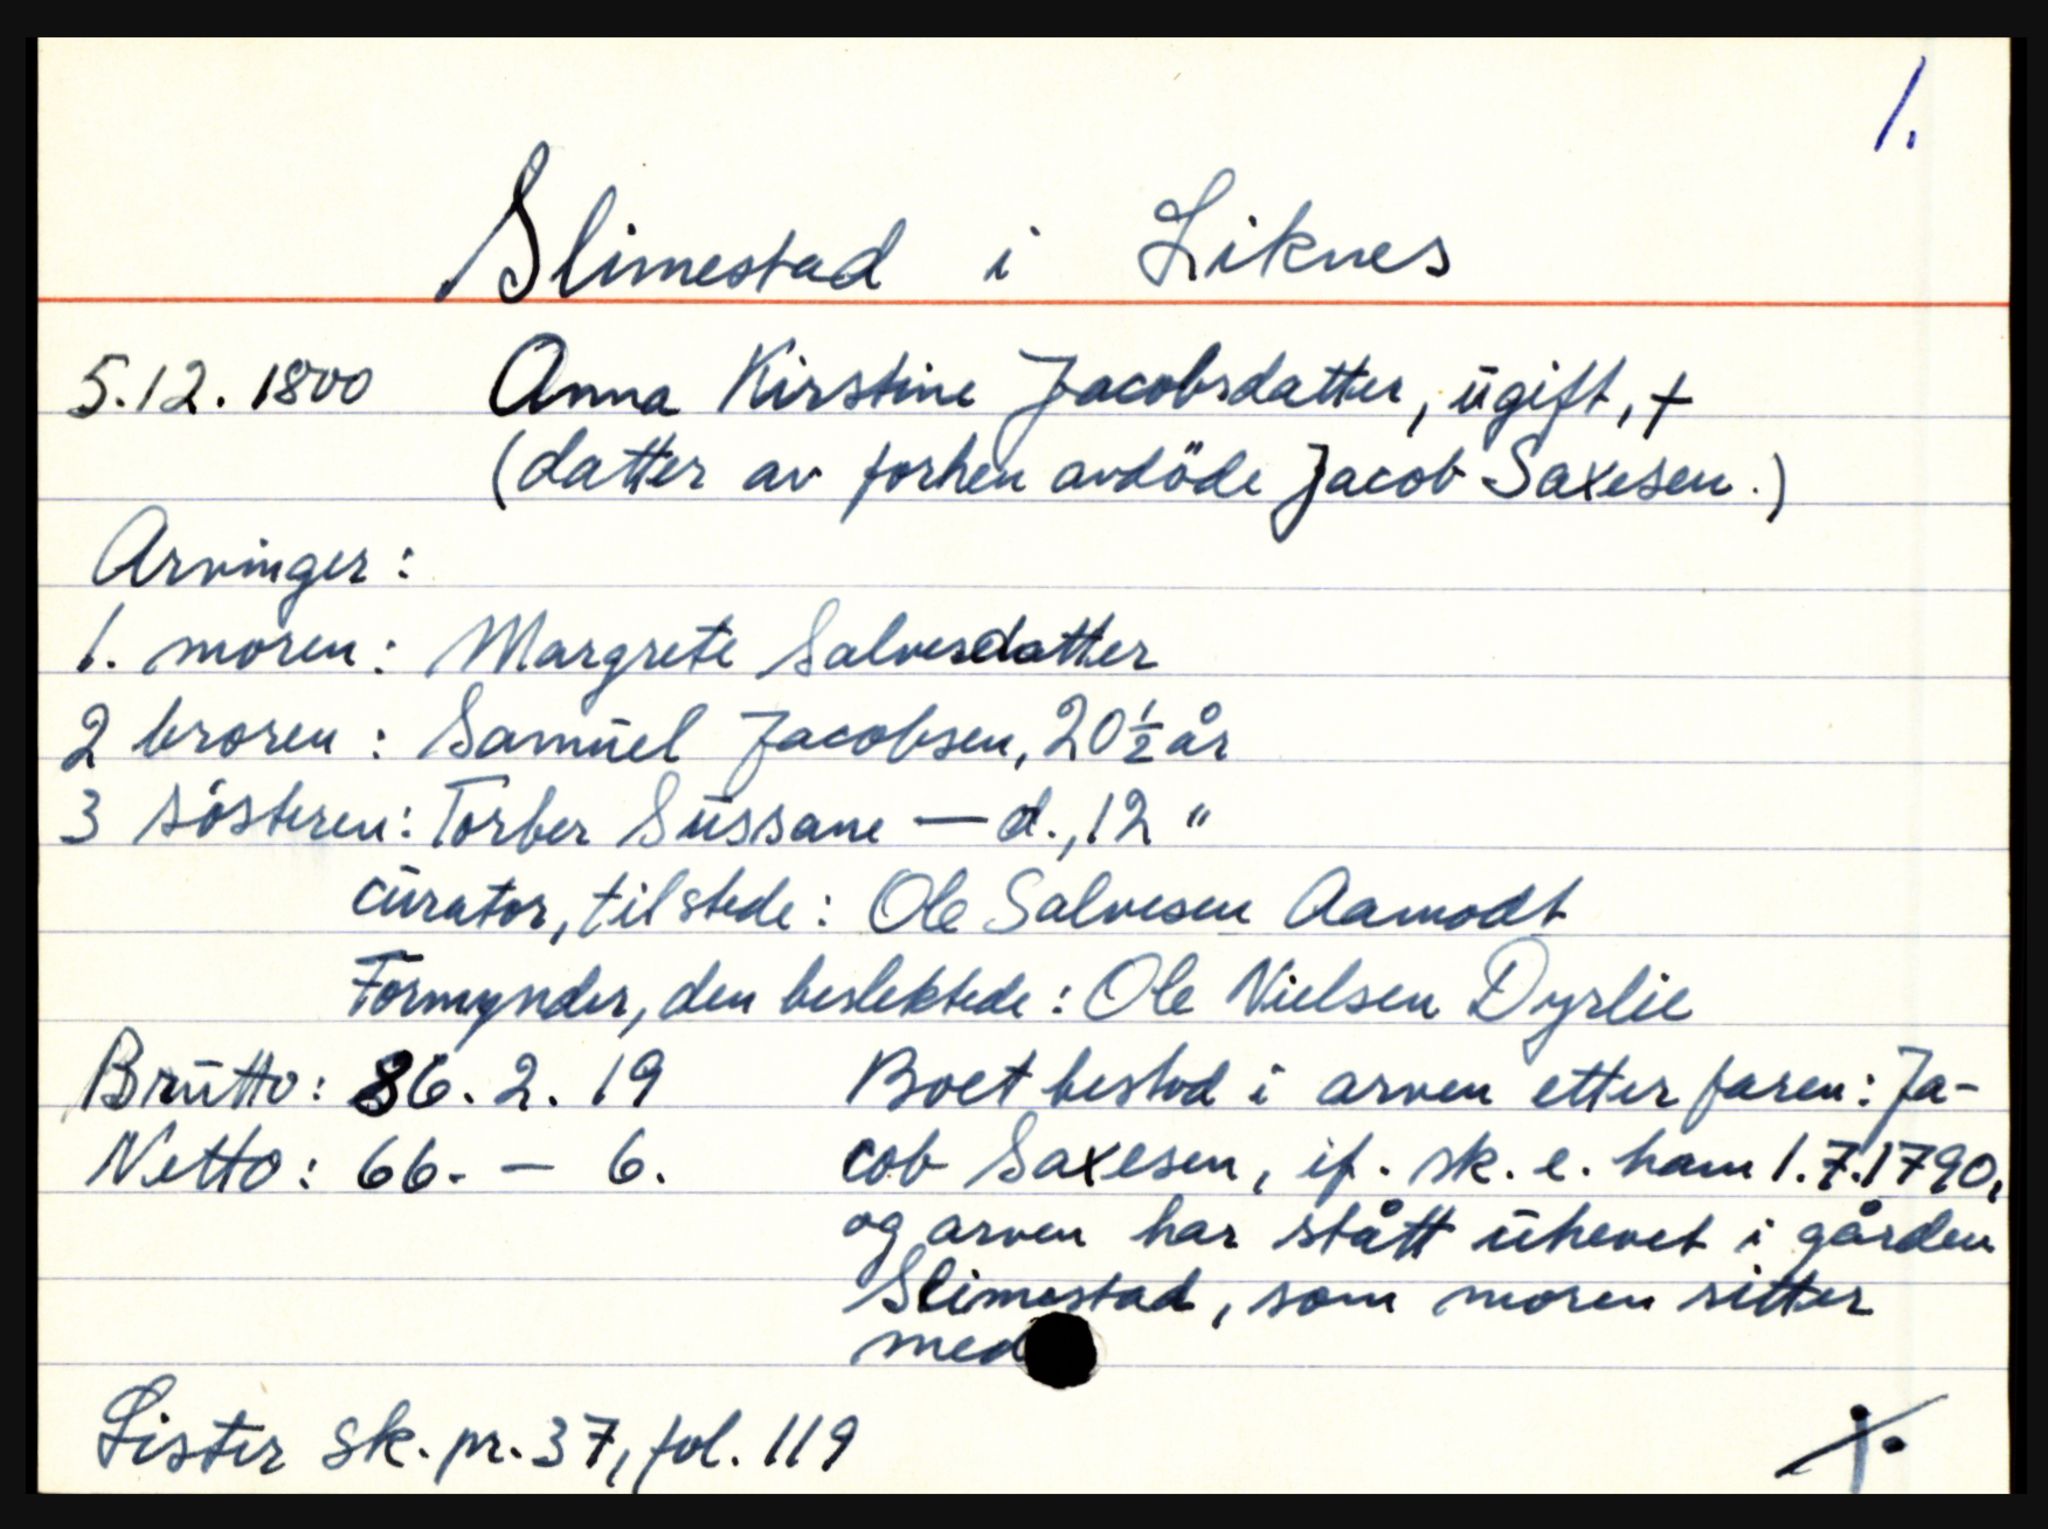 1.
Slimestad i Liknes
5.12.1800 Anna Kirstine Jacobsdatter, ugift, †
(datter av forhen avdöde Jacob Saxesen.)
Arvinger:
1. moren: Margrete Salvesdatter
2 broren: Samuel Jacobsen, 20 ½ år
3 søsteren: Torber Sussane — d., 12 "
curator, tilstede: Ole Salvesen Aamodt
Formynder, den beslektede: Ole Nielsen Dyrlie
Brutto: 86. 2. 19 Boet bestod i arven etter faren: Ja-
Netto: 66. — 6. cob Saxesen, if. sk. e. ham 1.7.1790,
og arven har stått uhevet i gården
Slimestad, som moren sitter
med
Lister sk. pr. 37, fol. 119